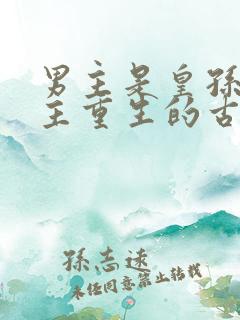 男主是皇孫
主重生的古
孫志遠
未经同意禁止转载